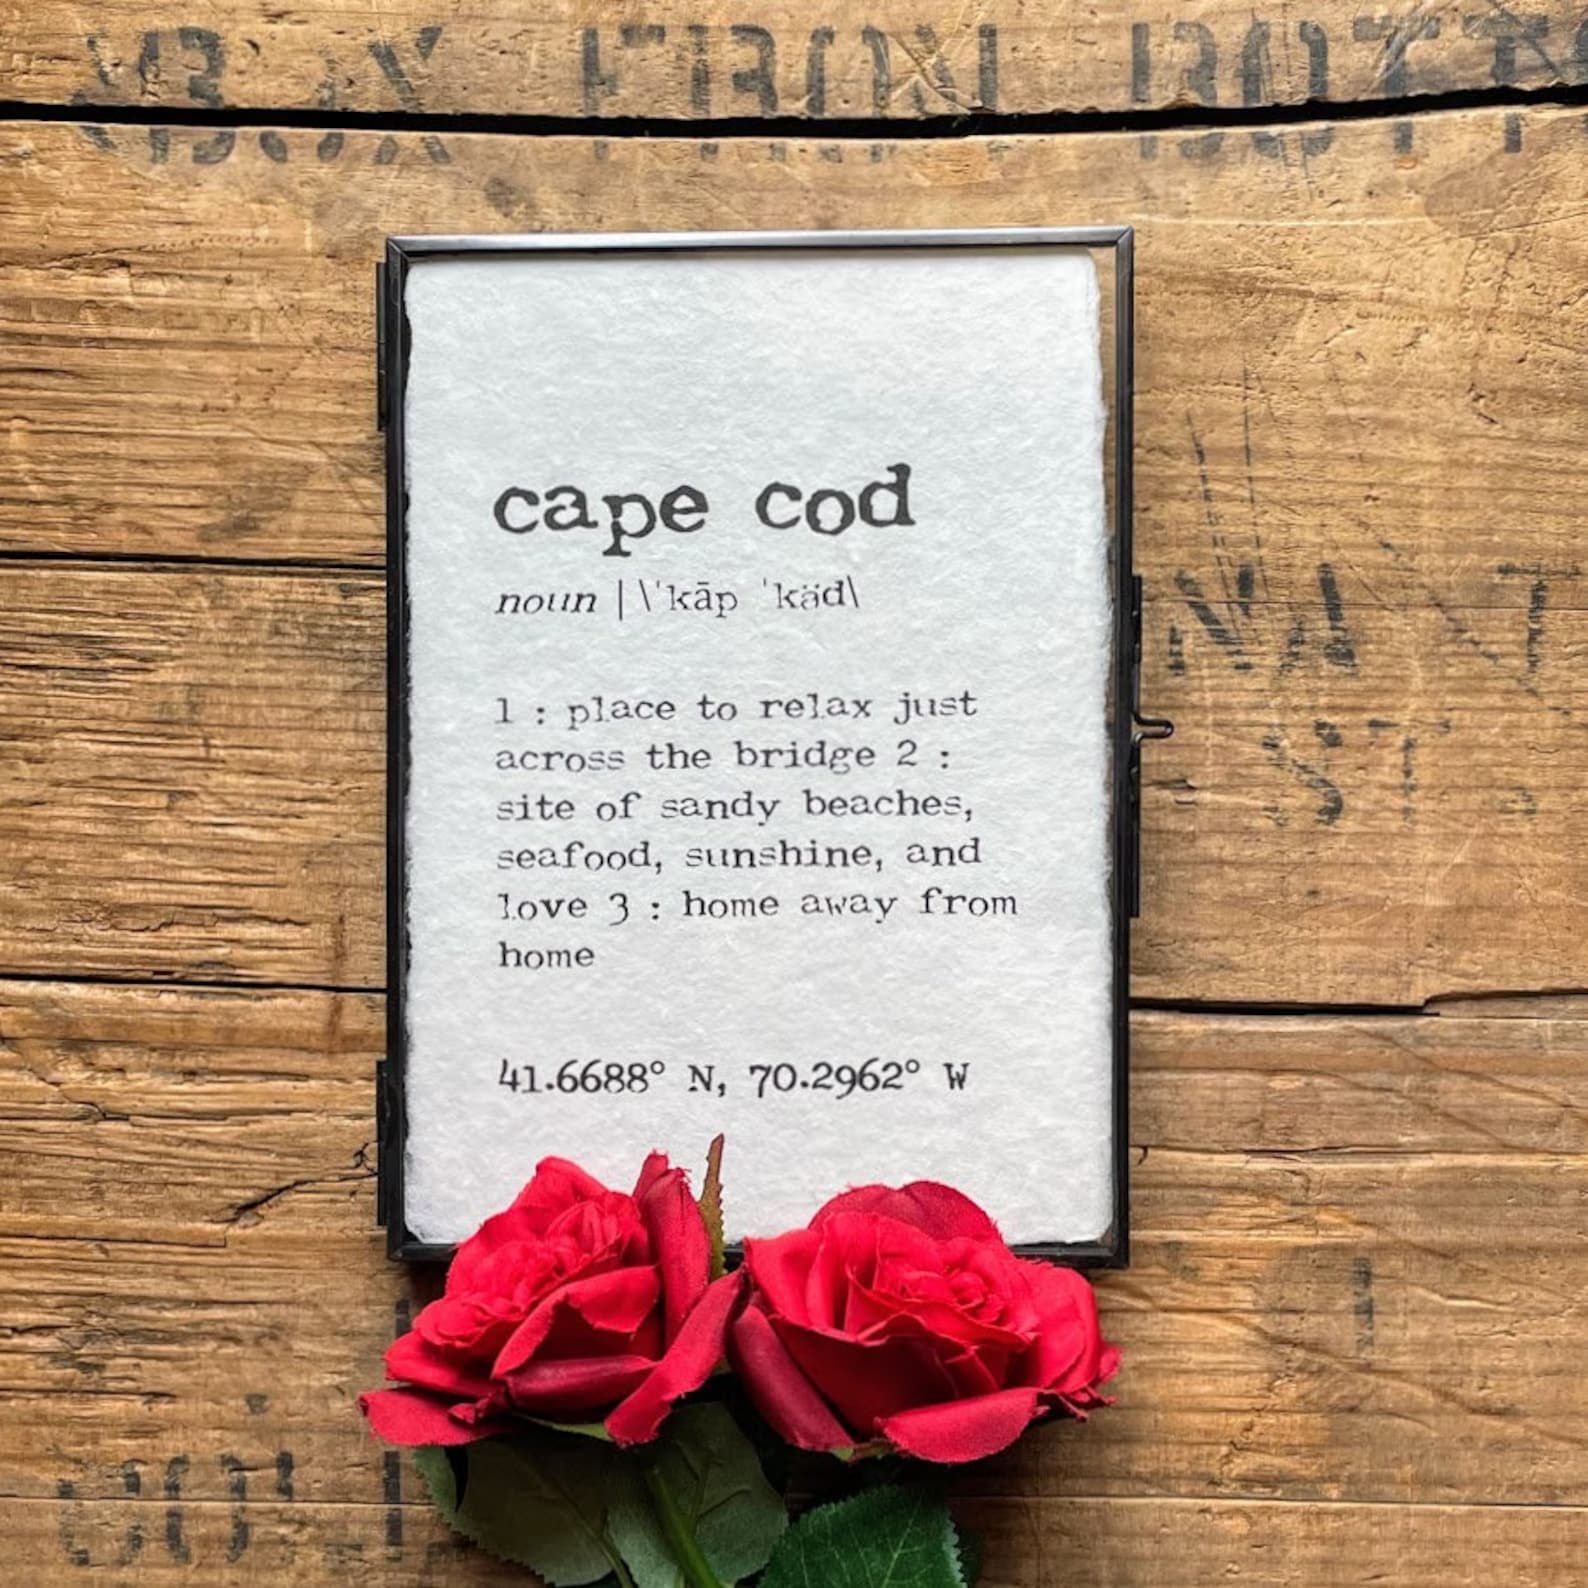 BOX FROM BOTT
cape cod
noun | \ˈkāp ˈkäd\
1 : place to relax just
across the bridge 2 :
site of sandy beaches,
seafood, sunshine, and
love 3 : home away from
home
41.6688° N, 70.2962° W